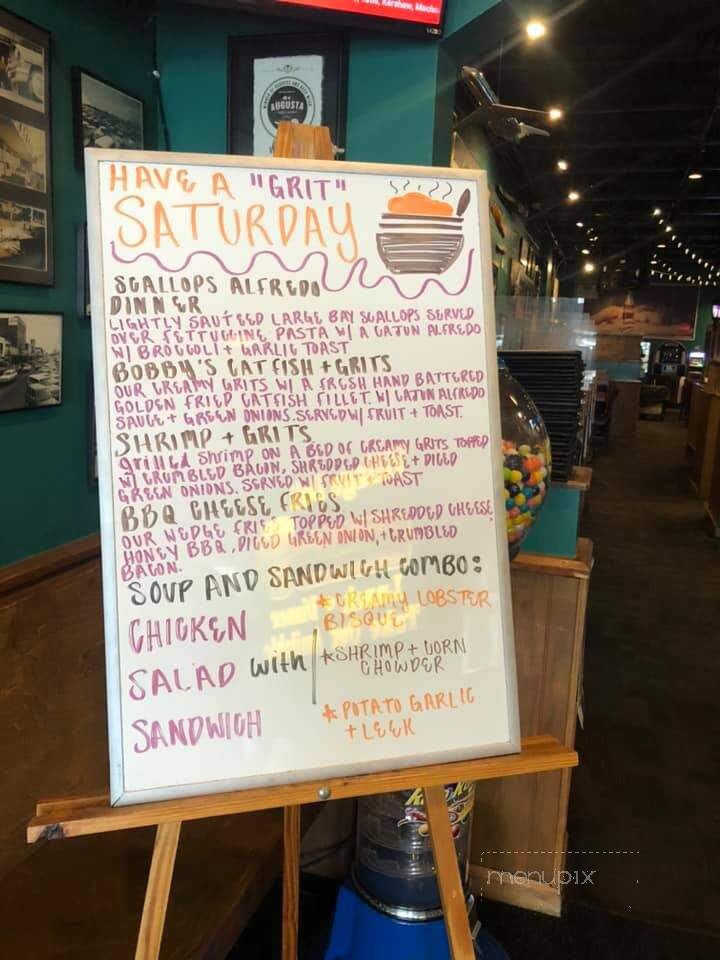 Kershaw,
AUGUSTA
HAVE A "GRIT"
SATURDAY
SCALLOPS ALFREDO
DINNER
LIGHTLY SAUTEED LARGE BAY SCALLOPS SERVED
OVER FETTUCCINE PASTA W/ A CAJUN ALFREDO
W/ BROCCOLI + GARLIC TOAST
BOBBY'S CATFISH + GRITS
OUR CREAMY GRITS W/ A FRESH HAND BATTERED
GOLDEN FRIED CATFISH FILLET. W/ CAJUN ALFREDO
SAUCE + GREEN ONIONS. SERVED W/ FRUIT + TOAST.
SHRIMP + GRITS
grilled Shrimp ON A BED OF CREAMY GRITS TOPPED
W/ CRUMBLED BACON, SHREDDED CHEESE + DICED
GREEN ONIONS. SERVED W/ FRUIT + TOAST
BBQ CHEESE FRIES
OUR WEDGE FRIES TOPPED W/ SHREDDED CHEESE,
HONEY BBQ, DICED GREEN ONION, + CRUMBLED
BACON.
SOUP AND SANDWICH COMBO:
CHICKEN
SALAD with
SANDWICH
* CREAMY LOBSTER
BISQUE
* SHRIMP + CORN
CHOWDER
* POTATO GARLIC
+ LEEK
menupix